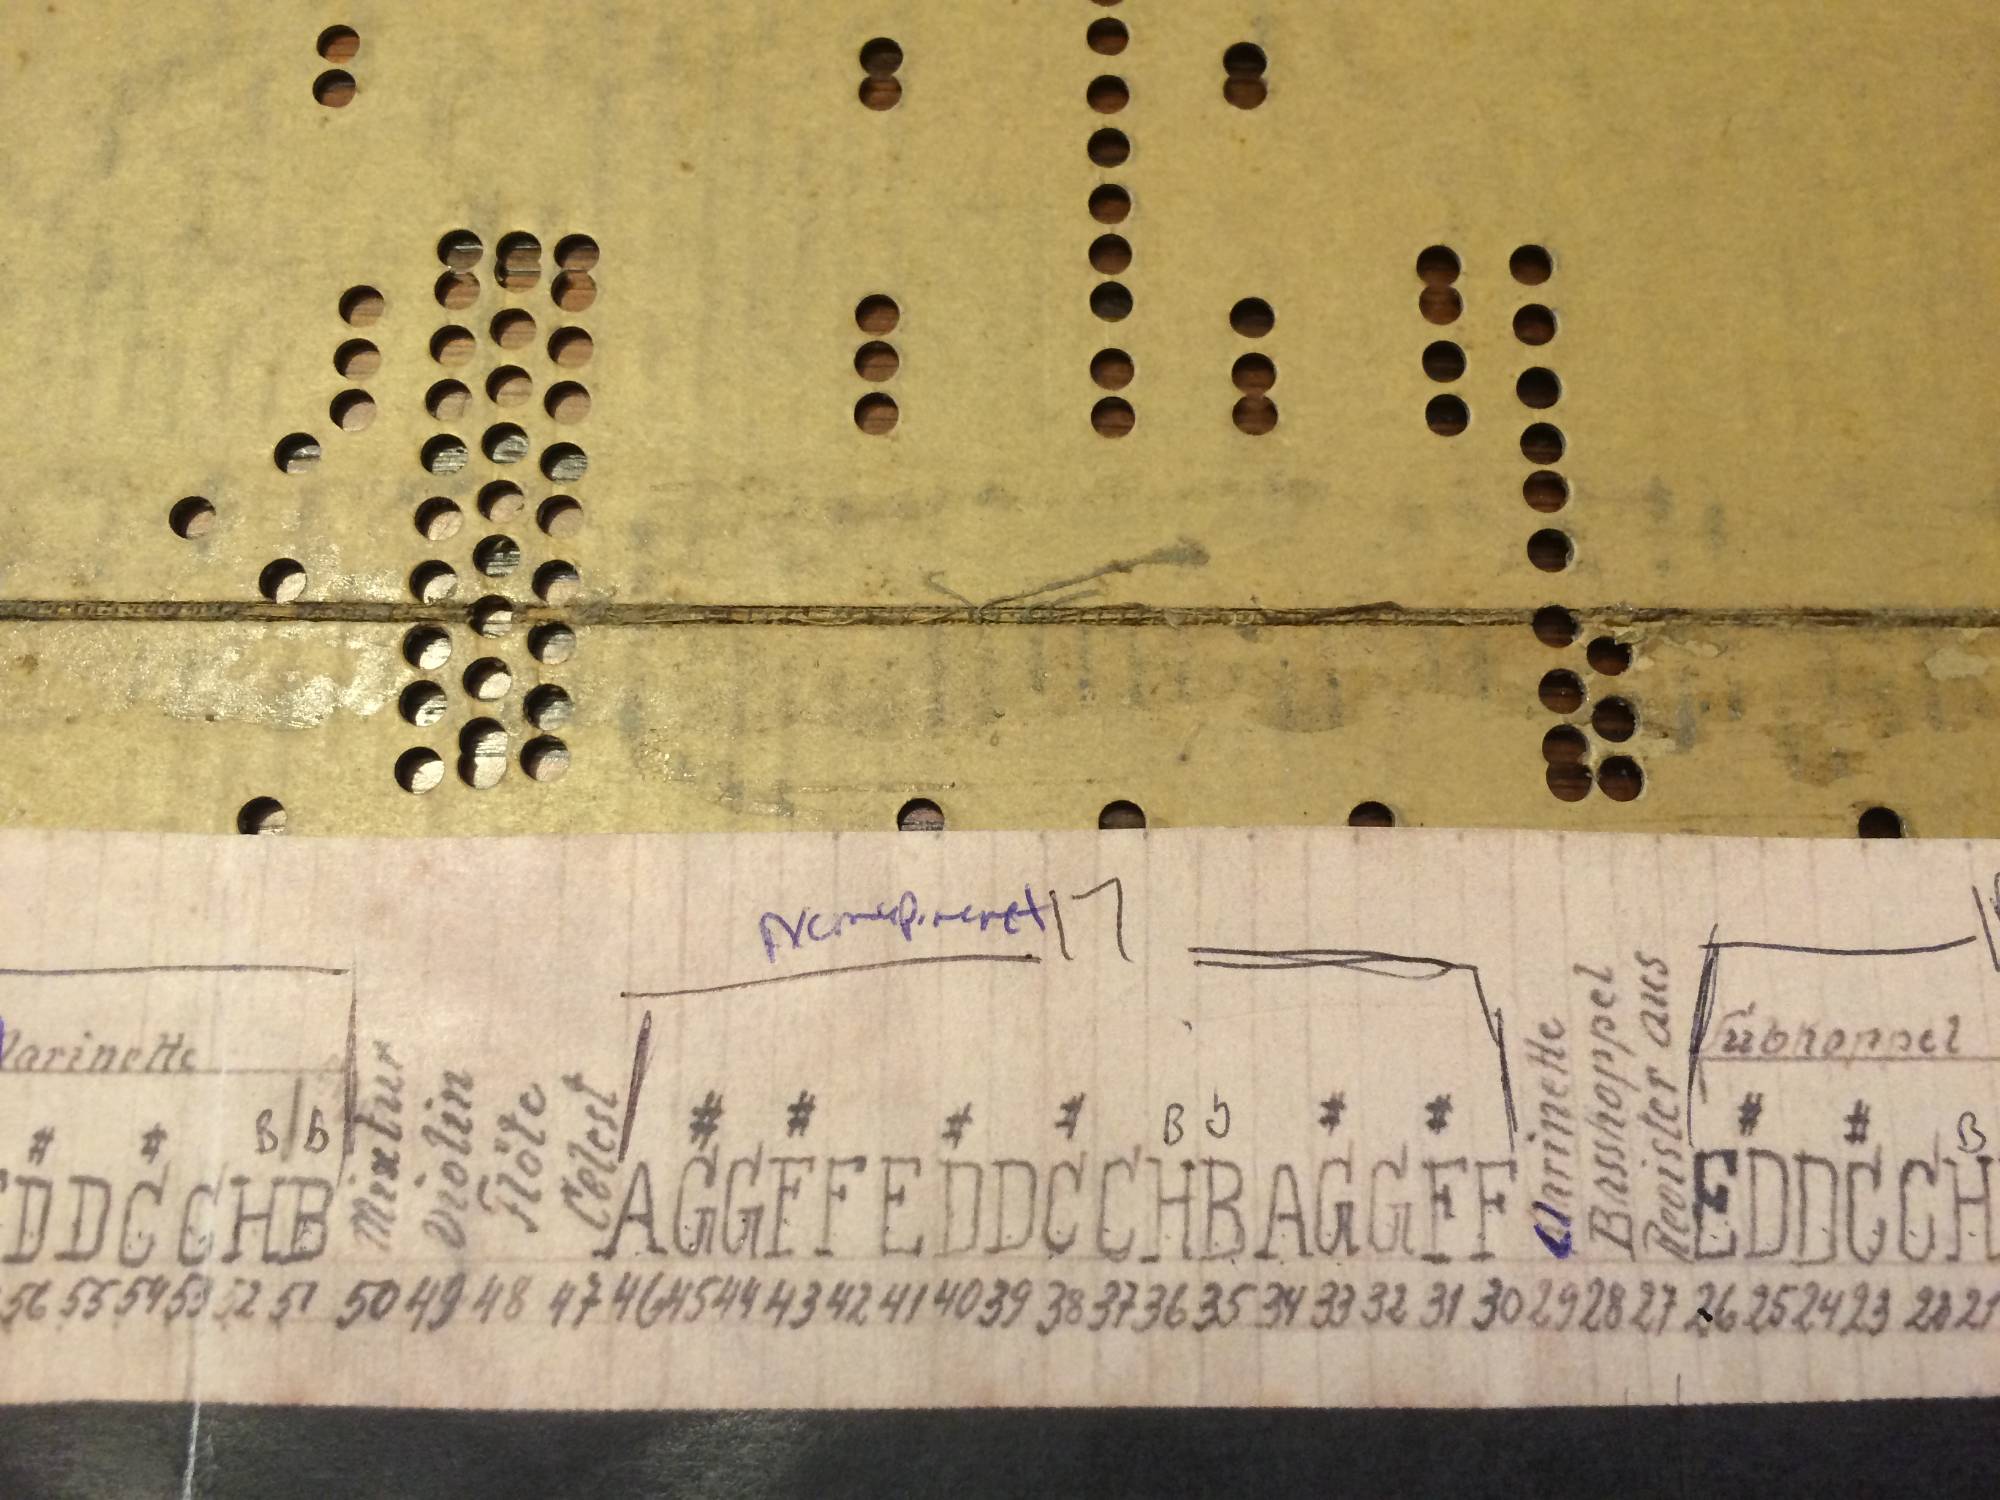 17
larinette
Mixtur
Violin
Flöte
Celest
Clarinette
Basskoppel
Register aus
Subkoppel
# # B B # # # # B b # # # # B
D D C C H B A G G F F E D D C C H B A G G F F E D D C C H
56 55 54 53 52 51 50 49 48 47 46 45 44 43 42 41 40 39 38 37 36 35 34 33 32 31 30 29 28 27 26 25 24 23 22 21